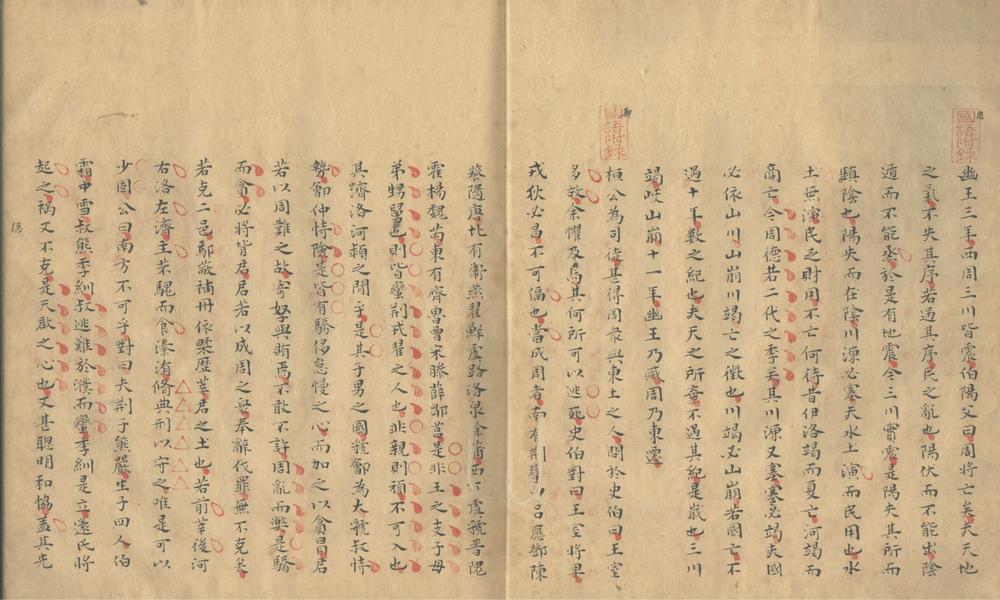 國語附錄
幽王三年西周三川皆震伯陽父曰周將亡矣夫天地
之氣不失其序若過其序民之亂也陽伏而不能出陰
遁而不能烝於是有地震今三川實震是陽失其所而
鎮陰也陽失而在陰川源必塞夫水土演而民用也水
土無演民乏財用不亡何待昔伊洛竭而夏亡河竭而
商亡今周德若二代之季矣其川源又塞塞必竭夫國
必依山川山崩川竭亡之徵也川竭必山崩若國亡不
過十年數之紀也夫天之所棄不過其紀是歲也三川
竭岐山崩十一年幽王乃滅周乃東遷
國語附錄
桓公為司徒甚得周衆與東土之人問於史伯曰王室
多故余懼及焉其何所可以逃死史伯對曰王室將卑
戎狄必昌不可偪也當成周者南有荆 呂應鄧陳
蔡隨唐北有衛燕翟鮮虞路洛泉徐蒲西有虞虢晉隗
霍楊魏芮東有齊魯曹宋滕薛鄒莒是非王之支子母
弟甥舅也則皆蠻荆戎翟之人也非親則頑不可入也
其濟洛河頴之間乎是其子男之國虢鄶為大虢叔恃
勢鄶仲恃險是皆有驕侈怠慢之心而加之以貪冒君
若以周難之故寄孥與賄焉不敢不許周亂而獘是驕
而貪必將背君君若以成周之衆奉辭伐罪無不克矣
若克二邑鄢蔽補舟依𪑴歷莘君之土也若前莘後河
右洛左濟主芣騩而食溱洧脩典刑以守之唯是可以
少固公曰南方不可乎對曰夫荆子熊嚴生子四人伯
霜中雪叔熊季紃叔逃難於濮而蠻季紃是立薳氏將
起之禍又不克是天啟之心也又甚聰明和協蓋其先